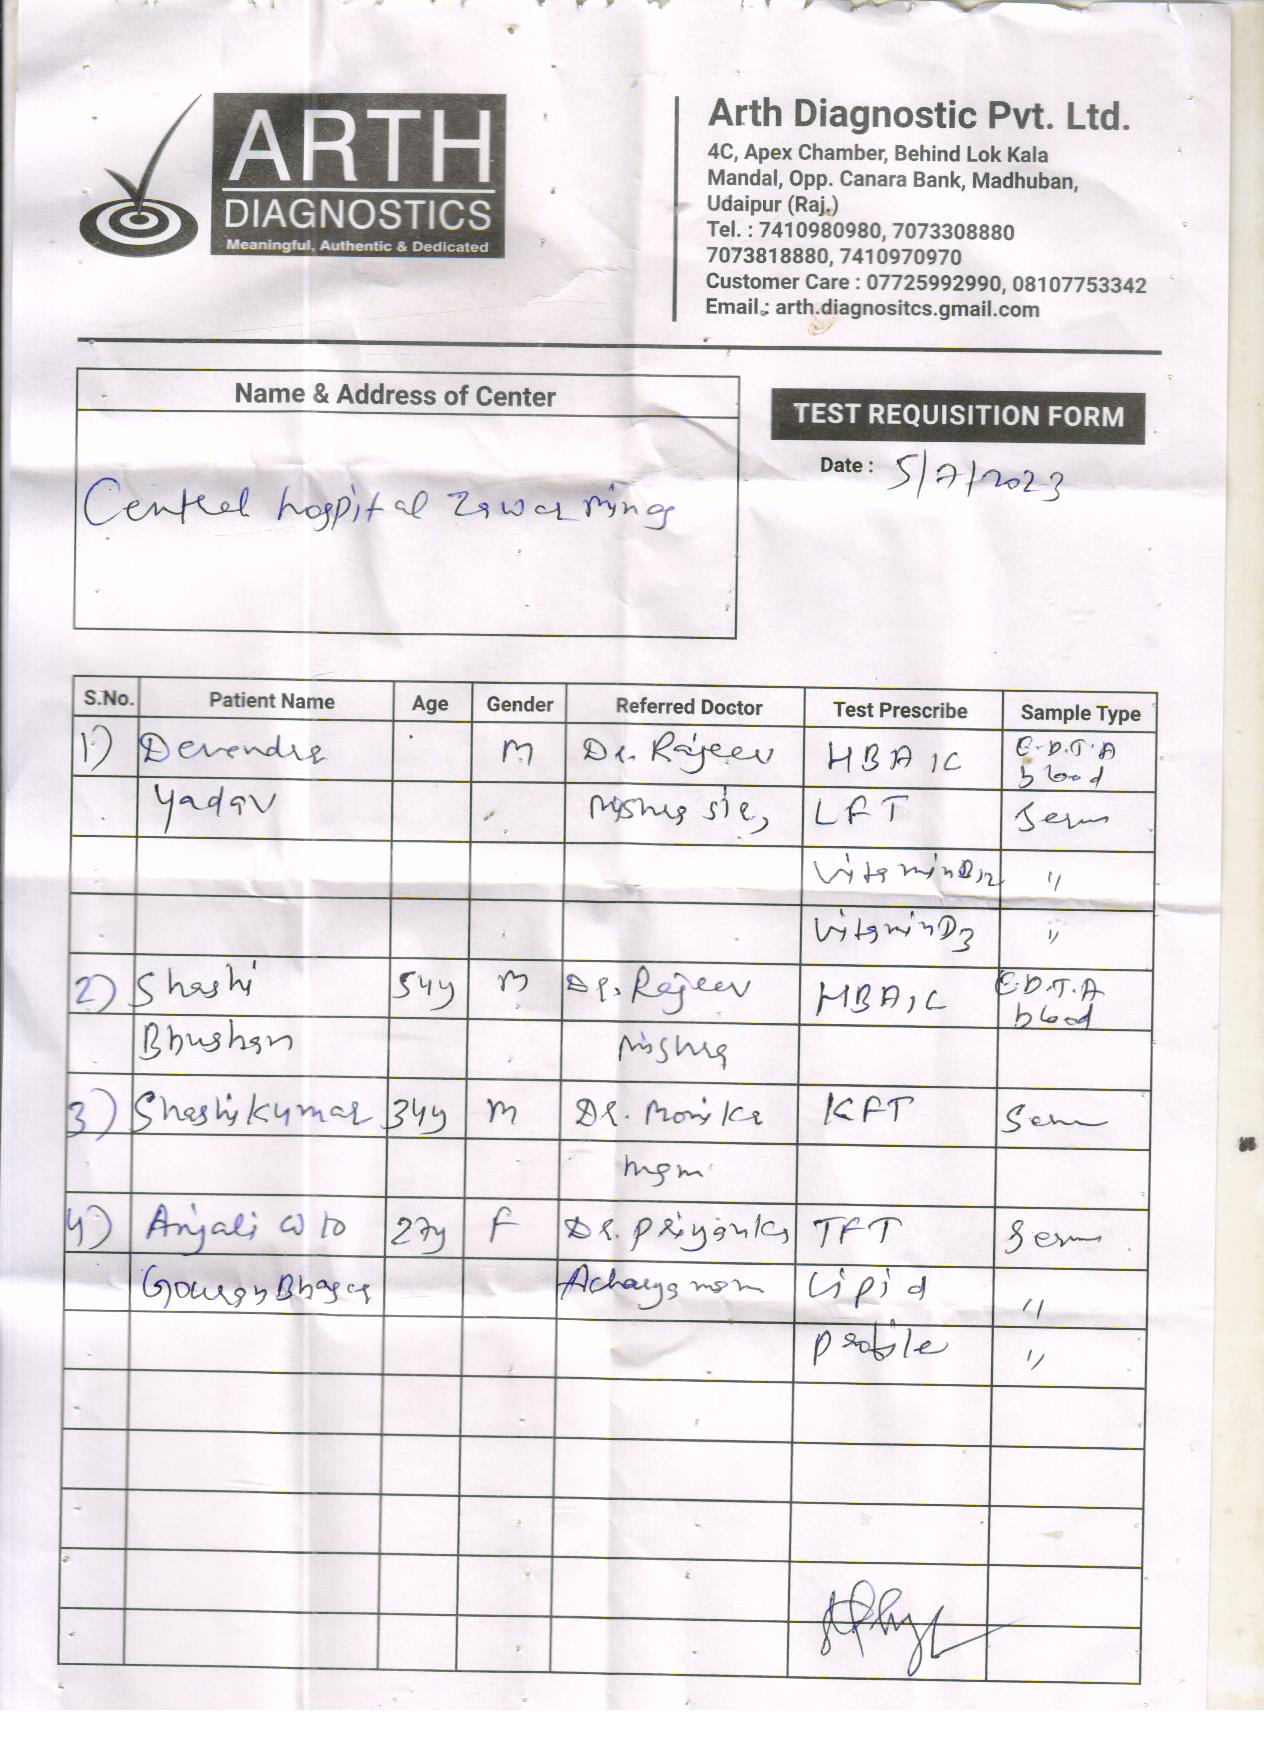 ARTH
DIAGNOSTICS
Meaningful, Authentic & Dedicated
Arth Diagnostic Pvt. Ltd.
4C, Apex Chamber, Behind Lok Kala
Mandal, Opp. Canara Bank, Madhuban,
Udaipur (Raj.)
Tel. : 7410980980, 7073308880
7073818880, 7410970970
Customer Care : 07725992990, 08107753342
Email : arth.diagnositcs.gmail.com
Name & Address of Center
TEST REQUISITION FORM
Date : 5/7/2023
Central hospital Zawar mines
S.No. Patient Name Age Gender Referred Doctor Test Prescribe Sample Type
1) Devendra M Dr. Rajeev HBA1C E.D.T.A blood
Yadav Mishra sir, LFT Serum
Vitamin B12 "
Vitamin D3 "
2) Shashi 54y M Dr. Rajeev HBA1C E.D.T.A blood
Bhushan Mishra
3) Shashi Kumar 34y M Dr. Monika KFT Serum
mam
4) Anjali w/o 27y F Dr. Priyanka TFT Serum
Acharya mam Lipid "
Profile "